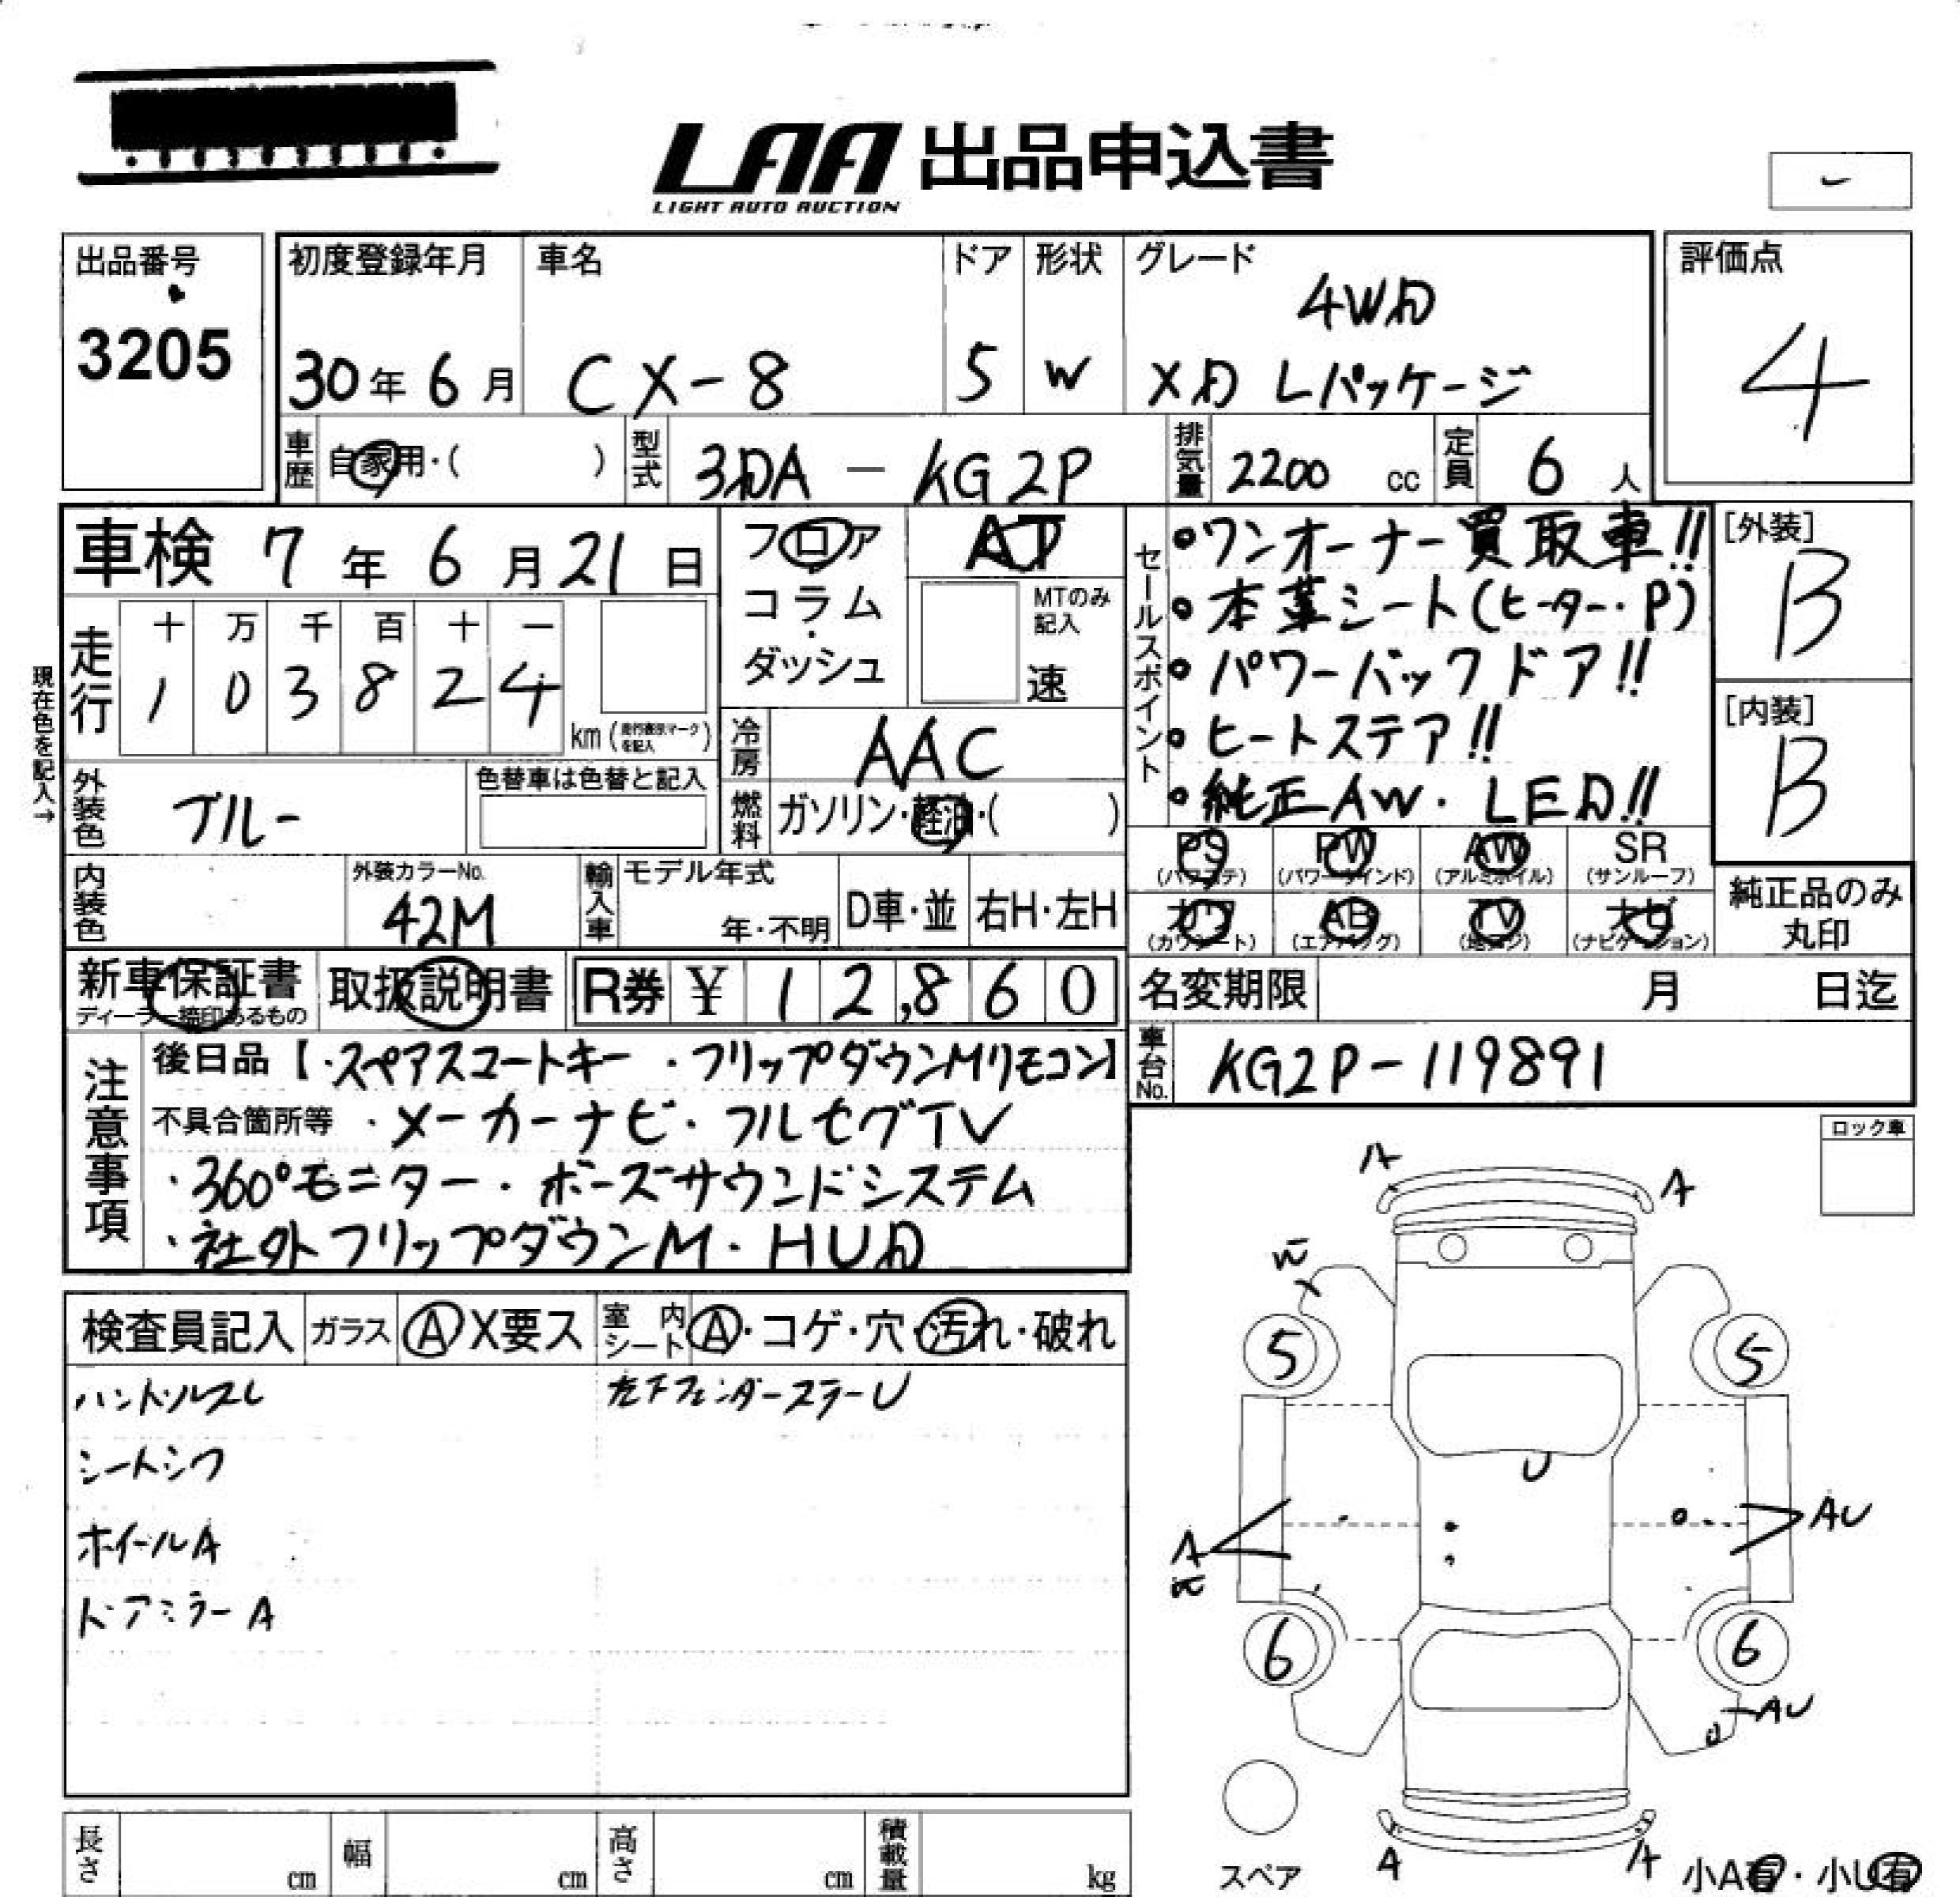 LAA 出品申込書
LIGHT AUTO AUCTION
出品番号
3205
初度登録年月
30年6月
車名
CX-8
ドア
5
形状
W
グレード
4WD
XD Lパッケージ
評価点
4
車歴 自家用・( )
型式 3DA - KG2P
排気量 2200 cc
定員 6 人
車検 7年6月21日
フロア
コラム
ダッシュ
AT
MTのみ記入
速
走行
十 万 千 百 十 一
1 0 3 8 2 4
km(走行表示マークを記入)
現在色を記入→
冷房 AAC
燃料 ガソリン・軽油・( )
外装色 ブルー
色替車は色替と記入
内装色
外装カラーNo.
42M
輸入車 モデル年式
年・不明
D車・並
右H・左H
セールスポイント
・ワンオーナー買取車!!
・本革シート(ヒーター・P)
・パワーバックドア!!
・ヒートステア!!
・純正AW・LED!!
[外装]
B
[内装]
B
PS (パワステ)
PW (パワーウインド)
AW (アルミホイル)
SR (サンルーフ)
カワ (カワシート)
AB (エアバッグ)
TV (地デジ)
ナビ (ナビゲーション)
純正品のみ丸印
新車保証書
ディーラー捺印あるもの
取扱説明書
R券 ¥ 12,860
名変期限 月 日迄
車台No. KG2P-119891
注意事項
後日品【・スペアスマートキー ・フリップダウンMリモコン】
不具合箇所等 ・メーカーナビ・フルセグTV
・360°モニター・ボーズサウンドシステム
・社外フリップダウンM・HUD
ロック車
検査員記入
ガラス A X要ス
室内シート A・コゲ・穴・汚れ・破れ
ハンドルスレ
シートシワ
ホイールA
ドアミラーA
左下フェンダーステーU
A
A
W
5
5
U
A
AU
6
6
AU
U
A
A
スペア
小A有・小U有
長さ cm
幅 cm
高さ cm
積載量 kg